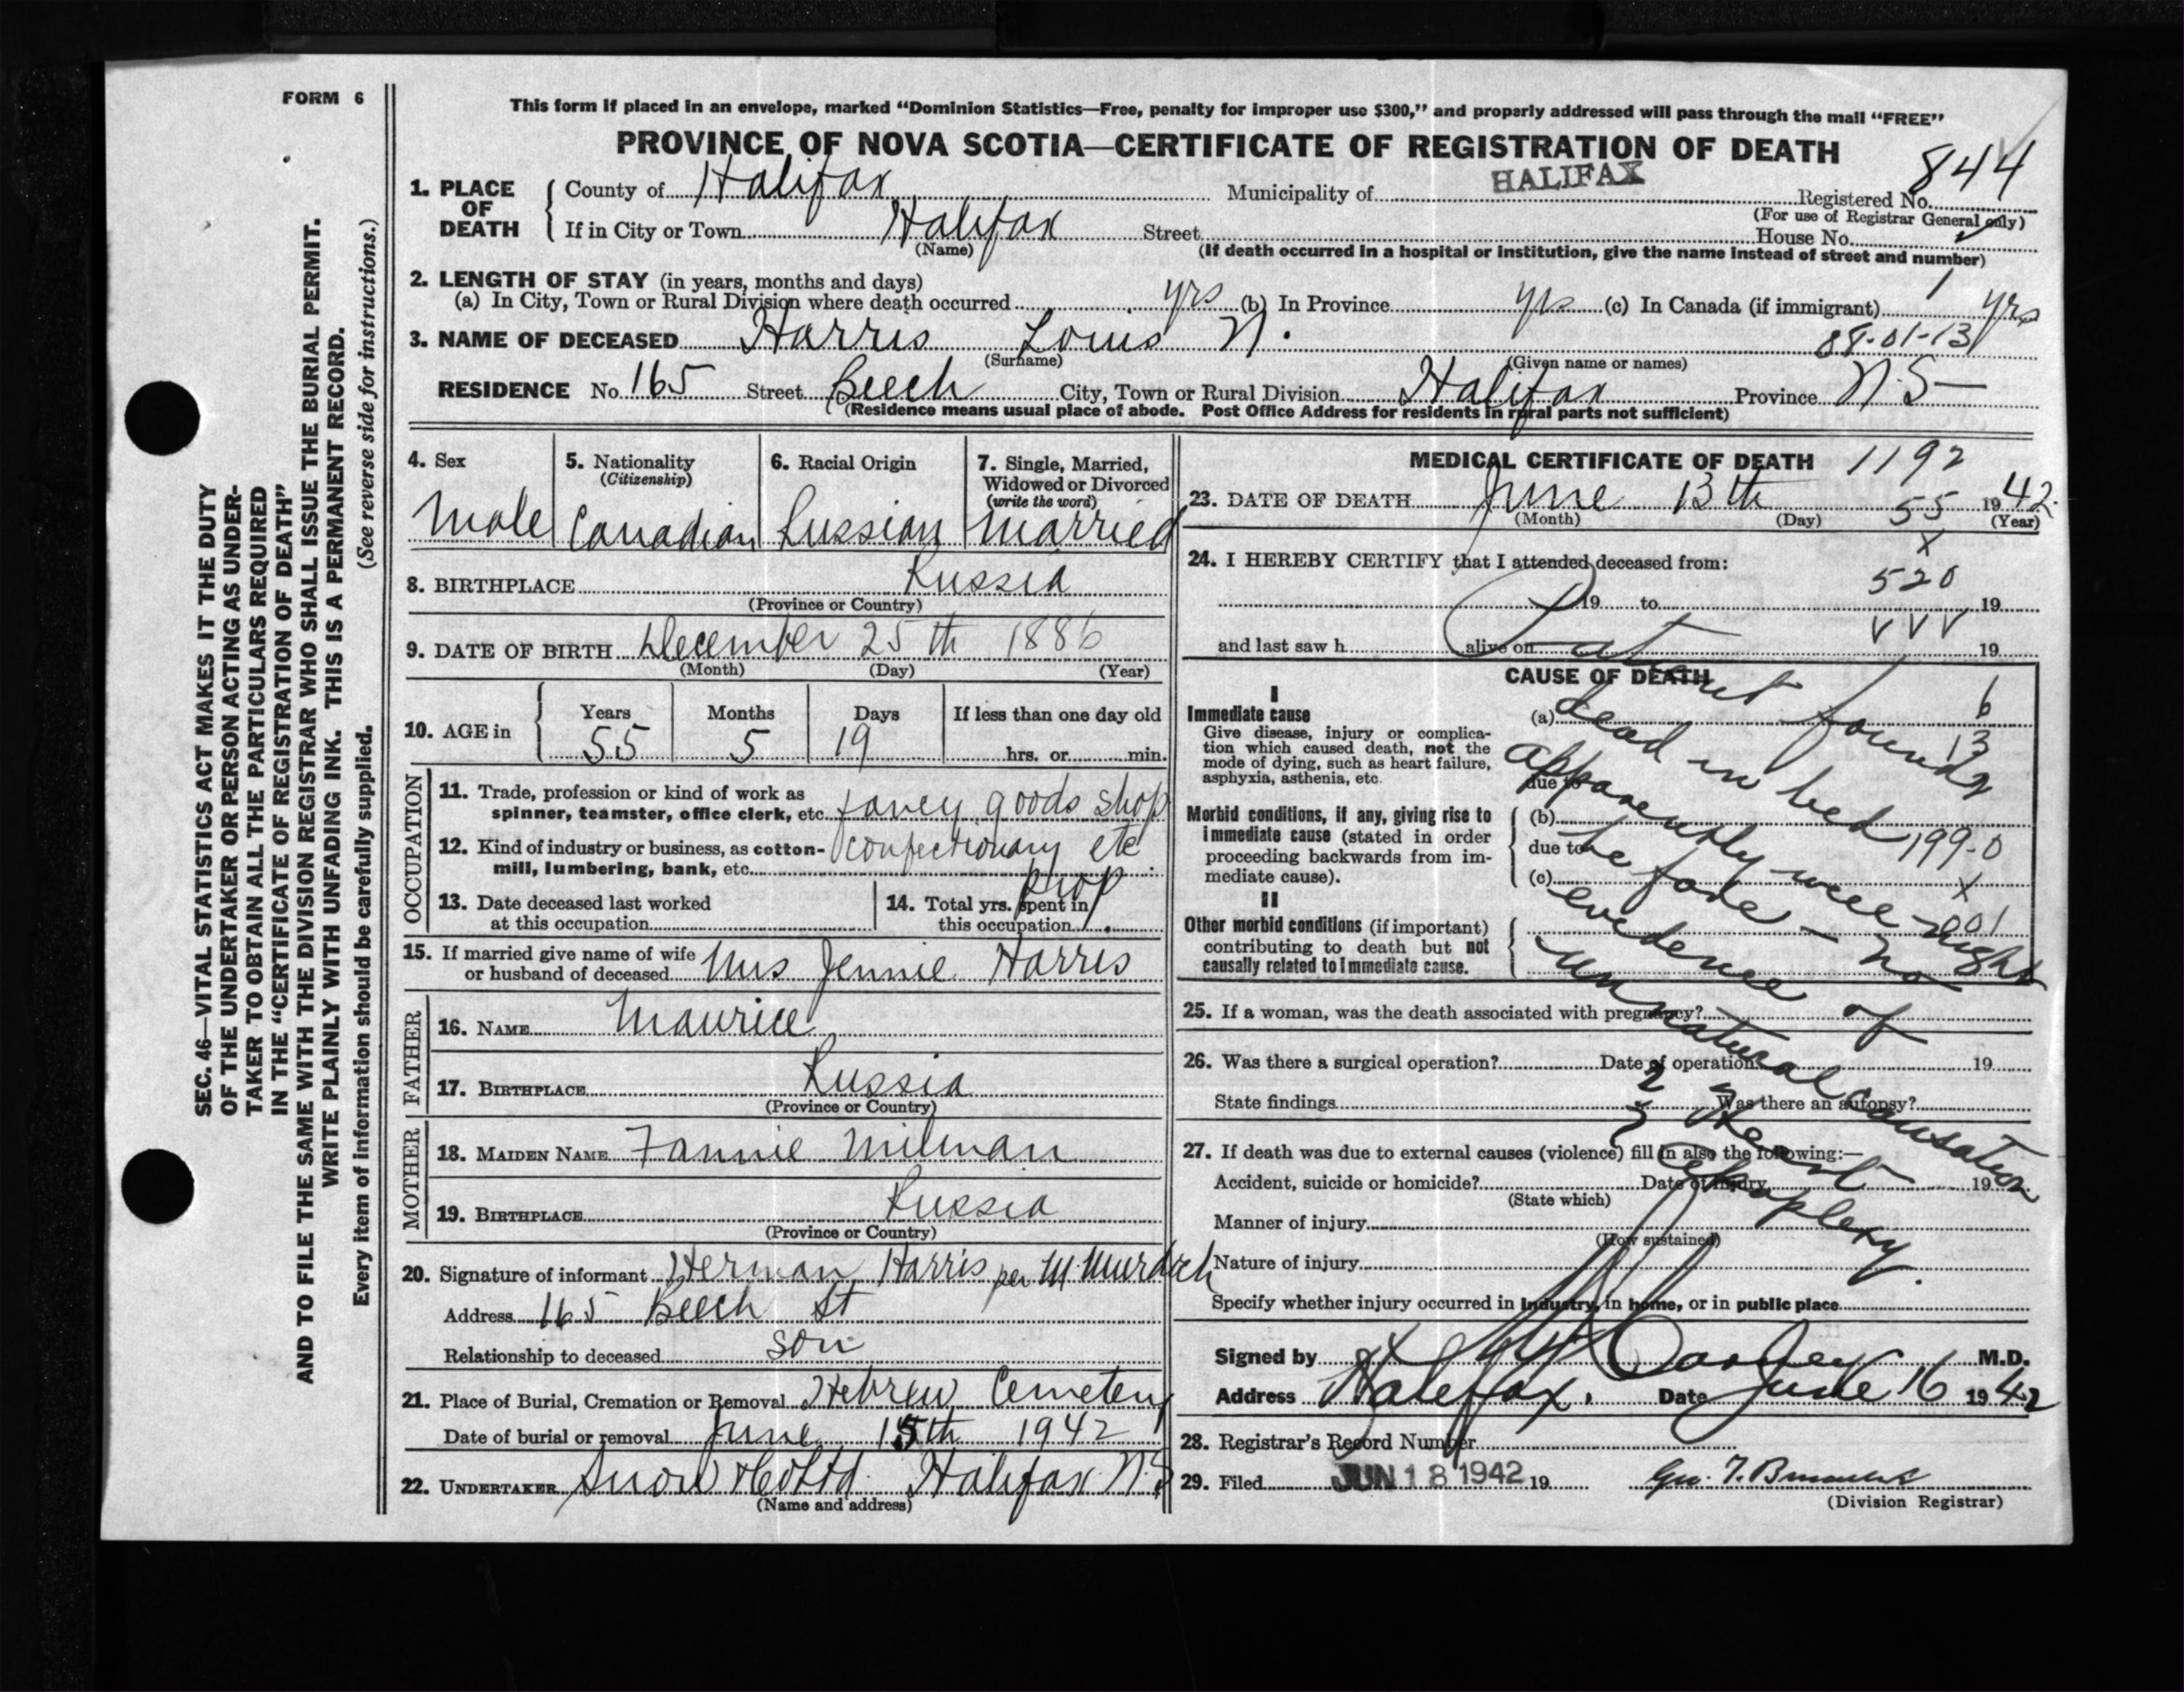 FORM 6
This form if placed in an envelope, marked “Dominion Statistics—Free, penalty for improper use $300,” and properly addressed will pass through the mail “FREE”
PROVINCE OF NOVA SCOTIA—CERTIFICATE OF REGISTRATION OF DEATH
844
1. PLACE OF DEATH County of Halifax Municipality of HALIFAX Registered No.
(For use of Registrar General only)
If in City or Town Halifax Street House No.
(Name) (If death occurred in a hospital or institution, give the name instead of street and number)
2. LENGTH OF STAY (in years, months and days)
(a) In City, Town or Rural Division where death occurred yrs (b) In Province yrs (c) In Canada (if immigrant) yrs
3. NAME OF DECEASED Harris Louis N.
(Surname) (Given name or names)
RESIDENCE No. 165 Street Beech City, Town or Rural Division Halifax Province N.S.
(Residence means usual place of abode. Post Office Address for residents in rural parts not sufficient)
4. Sex
Male
5. Nationality
(Citizenship)
Canadian
6. Racial Origin
Russian
7. Single, Married,
Widowed or Divorced
(write the word)
Married
8. BIRTHPLACE Russia
(Province or Country)
9. DATE OF BIRTH December 25th 1886
(Month) (Day) (Year)
10. AGE in Years Months Days If less than one day old
55 5 19 hrs. or min.
OCCUPATION
11. Trade, profession or kind of work as
spinner, teamster, office clerk, etc. fancy goods shop
12. Kind of industry or business, as cotton-
mill, lumbering, bank, etc. confectionary etc
prop
13. Date deceased last worked
at this occupation
14. Total yrs. spent in
this occupation
15. If married give name of wife
or husband of deceased Mrs Jennie Harris
FATHER
16. NAME Maurice
17. BIRTHPLACE Russia
(Province or Country)
MOTHER
18. MAIDEN NAME Fannie Milman
19. BIRTHPLACE Russia
(Province or Country)
20. Signature of informant Herman Harris per M Murdoch
Address 165 Beech St
Relationship to deceased son
21. Place of Burial, Cremation or Removal Hebrew Cemetery
Date of burial or removal June 15th 1942
22. UNDERTAKER Snow & Co Ltd. Halifax N.S
(Name and address)
MEDICAL CERTIFICATE OF DEATH 1192
23. DATE OF DEATH June 13th 1942
(Month) (Day) 55 (Year)
x
24. I HEREBY CERTIFY that I attended deceased from:
520
19 to 19
and last saw h alive on 19
CAUSE OF DEATH
I
Immediate cause
Give disease, injury or complica-
tion which caused death, not the
mode of dying, such as heart failure,
asphyxia, asthenia, etc.
(a)
due to
Morbid conditions, if any, giving rise to
immediate cause (stated in order
proceeding backwards from im-
mediate cause).
(b)
due to
(c)
II
Other morbid conditions (if important)
contributing to death but not
causally related to immediate cause.
Patient found
dead in bed
apparently
night
before - no
evidence of
unnatural causation
? Heart
? apoplexy.
6
13
199-0
x
001
25. If a woman, was the death associated with pregnancy?
26. Was there a surgical operation? Date of operation 19
State findings Was there an autopsy?
27. If death was due to external causes (violence) fill in also the following:—
Accident, suicide or homicide? Date of injury 19
(State which)
Manner of injury
(How sustained)
Nature of injury
Specify whether injury occurred in industry, in home, or in public place
Signed by M.D.
Address Halifax, Date June 16 1942
28. Registrar’s Record Number
29. Filed JUN 18 1942 19
(Division Registrar)
SEC. 46—VITAL STATISTICS ACT MAKES IT THE DUTY
OF THE UNDERTAKER OR PERSON ACTING AS UNDER-
TAKER TO OBTAIN ALL THE PARTICULARS REQUIRED
IN THE “CERTIFICATE OF REGISTRATION OF DEATH”
AND TO FILE THE SAME WITH THE DIVISION REGISTRAR WHO SHALL ISSUE THE BURIAL PERMIT.
WRITE PLAINLY WITH UNFADING INK. THIS IS A PERMANENT RECORD.
Every item of information should be carefully supplied. (See reverse side for instructions.)